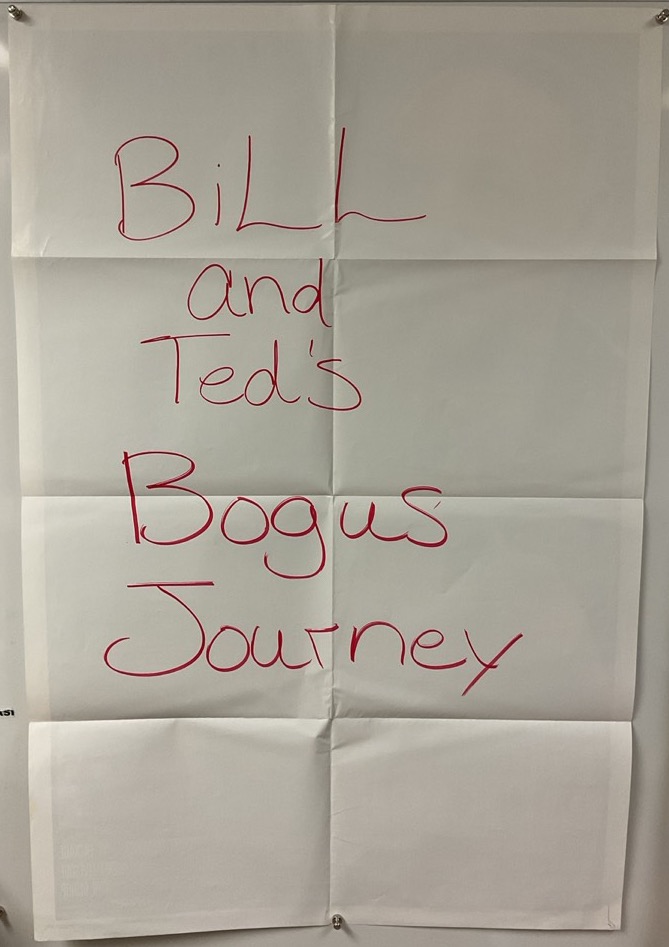 BiLL
and
Ted's
Bogus
Journey